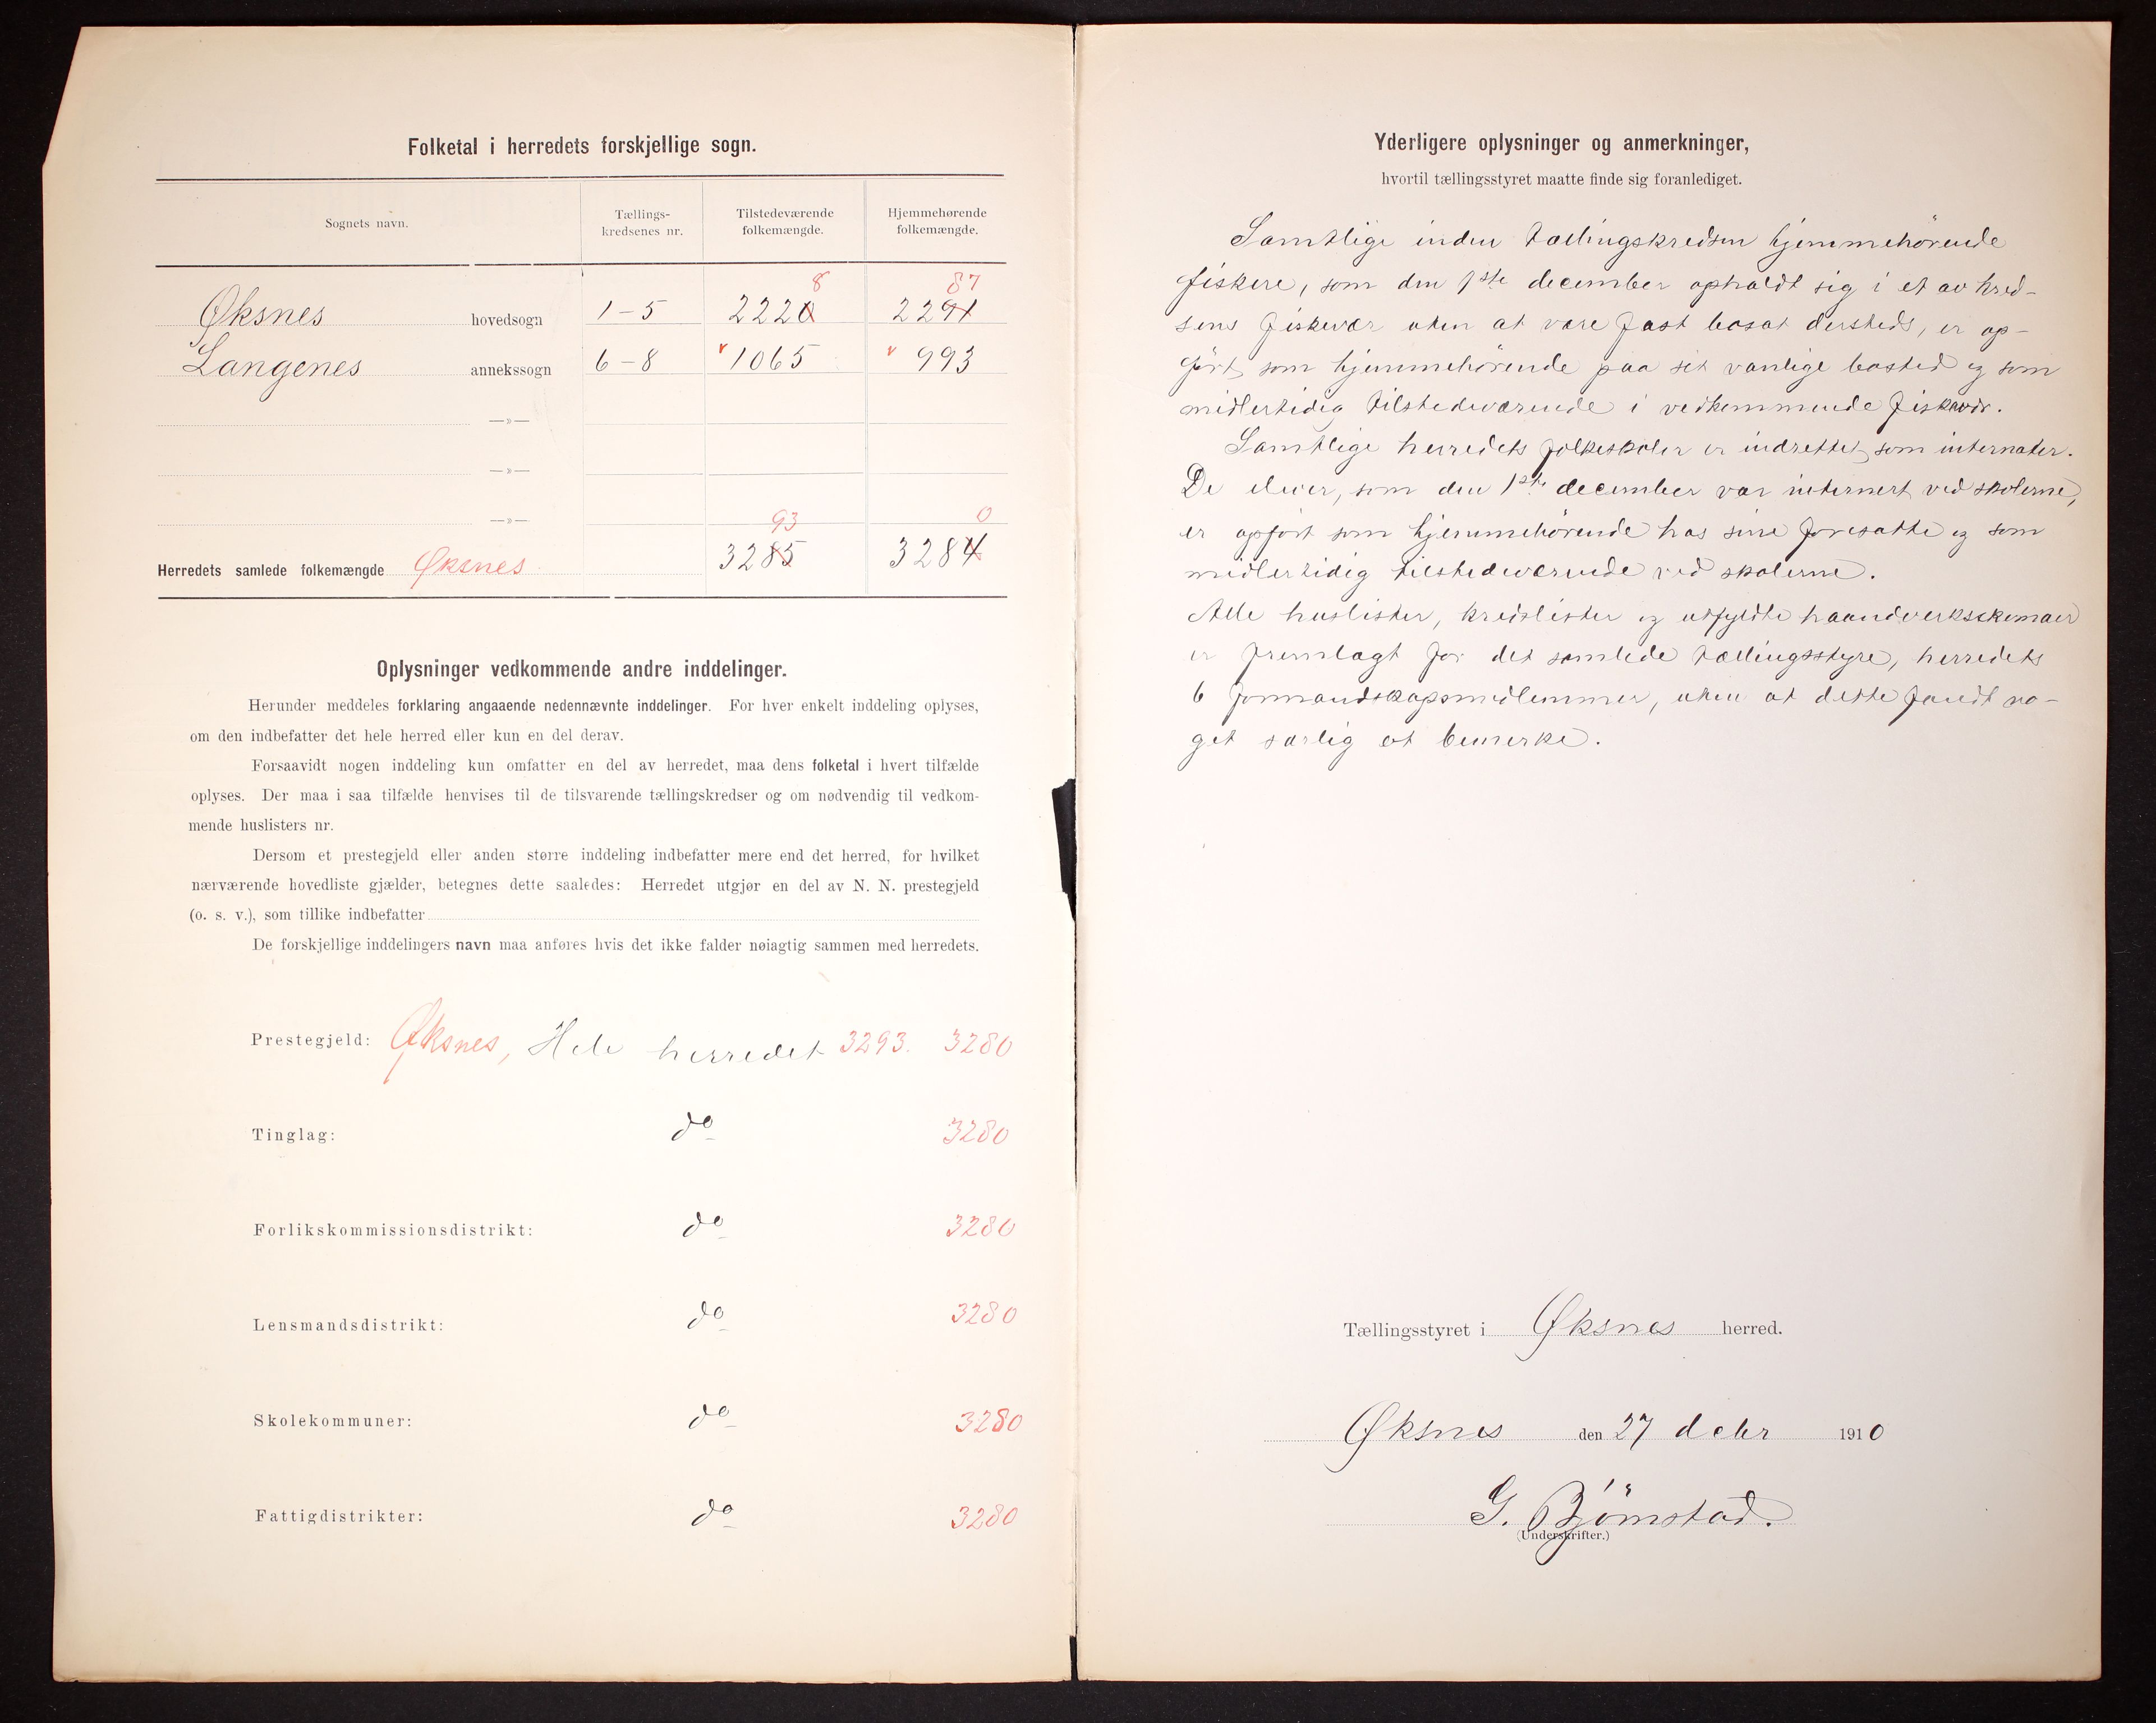 Folketal i herredets forskjellige sogn.
Sognets navn.
Tællings-
kredsenes nr.
Tilstedeværende
folkemængde.
Hjemmehørende
folkemængde.
8 87
Øksnes hovedsogn 1-5 2220 2291
Langenes annekssogn 6-8 v 1065 v 993
—»—
—»—
—»—
93 0
Herredets samlede folkemængde Øksnes 3285 3284
Oplysninger vedkommende andre inddelinger.
Herunder meddeles forklaring angaaende nedennævnte inddelinger. For hver enkelt inddeling oplyses,
om den indbefatter det hele herred eller kun en del derav.
Forsaavidt nogen inddeling kun omfatter en del av herredet, maa dens folketal i hvert tilfælde
oplyses. Der maa i saa tilfælde henvises til de tilsvarende tællingskredser og om nødvendig til vedkom-
mende huslisters nr.
Dersom et prestegjeld eller anden større inddeling indbefatter mere end det herred, for hvilket
nærværende hovedliste gjælder, betegnes dette saaledes: Herredet utgjør en del av N. N. prestegjeld
(o. s. v.), som tillike indbefatter
De forskjellige inddelingers navn maa anføres hvis det ikke falder nøiagtig sammen med herredets.
Prestegjeld: Øksnes, Hele herredet 3293. 3280
Tinglag: do 3280
Forlikskommissionsdistrikt: do 3280
Lensmandsdistrikt: do 3280
Skolekommuner: do 3280
Fattigdistrikter: do 3280
Yderligere oplysninger og anmerkninger,
hvortil tællingsstyret maatte finde sig foranlediget.
Samtlige inden tællingskredsen hjemmehörende
fiskere, som den 1ste december opholdt sig i et av kred-
sens fiskevær uten at være fast bosat dersteds, er op-
fört som hjemmehörende paa sit vanlige bosted og som
midlertidig tilstedeværende i vedkommende fiskevær.
Samtlige herredets folkeskoler er indrettet som internater.
De elever, som den 1ste december var internert ved skolerne,
er opfört som hjemmehörende hos sine foresatte og som
midlertidig tilstedeværende ved skolerne.
Alle huslister, kredslister og utfyldte haandverksskemaer
er fremlagt for det samlede tællingsstyre, herredets
6 formandskapsmedlemmer, uten at dette fandt no-
get særlig at bemerke.
Tællingsstyret i Øksnes herred.
Øksnes den 27 debr 1910
G. Björnstad.
(Underskrifter.)